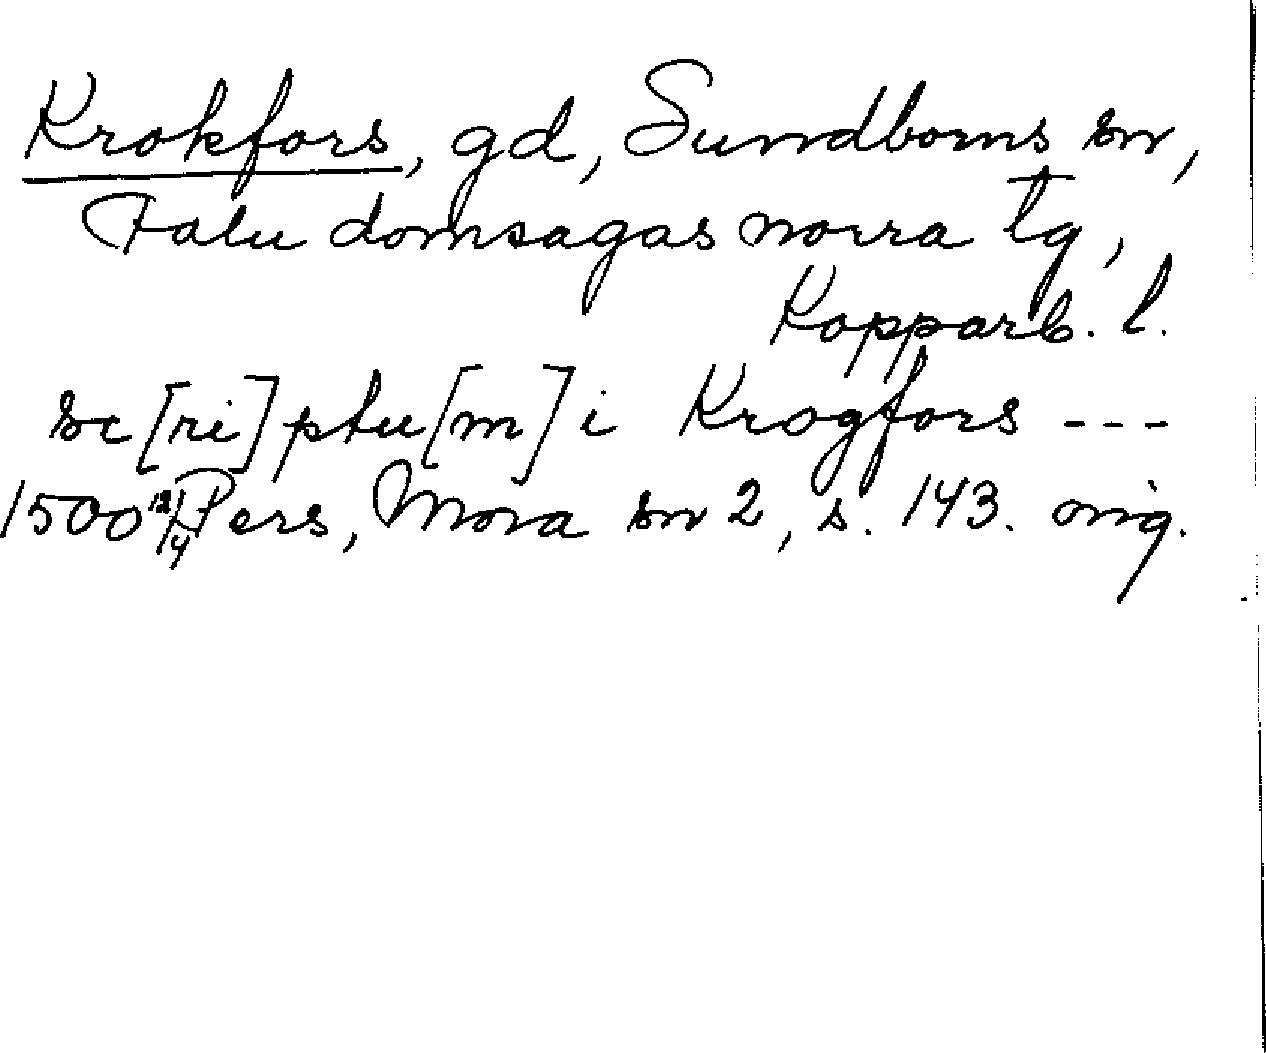 Krokfors, gd, Sundborns sn,
Falu domsagas norra tg,
Kopparb. l.
sc[ri]ptu[m] i Krogfors ---
1500 Pers, Mora sn 2, s. 143. orig.